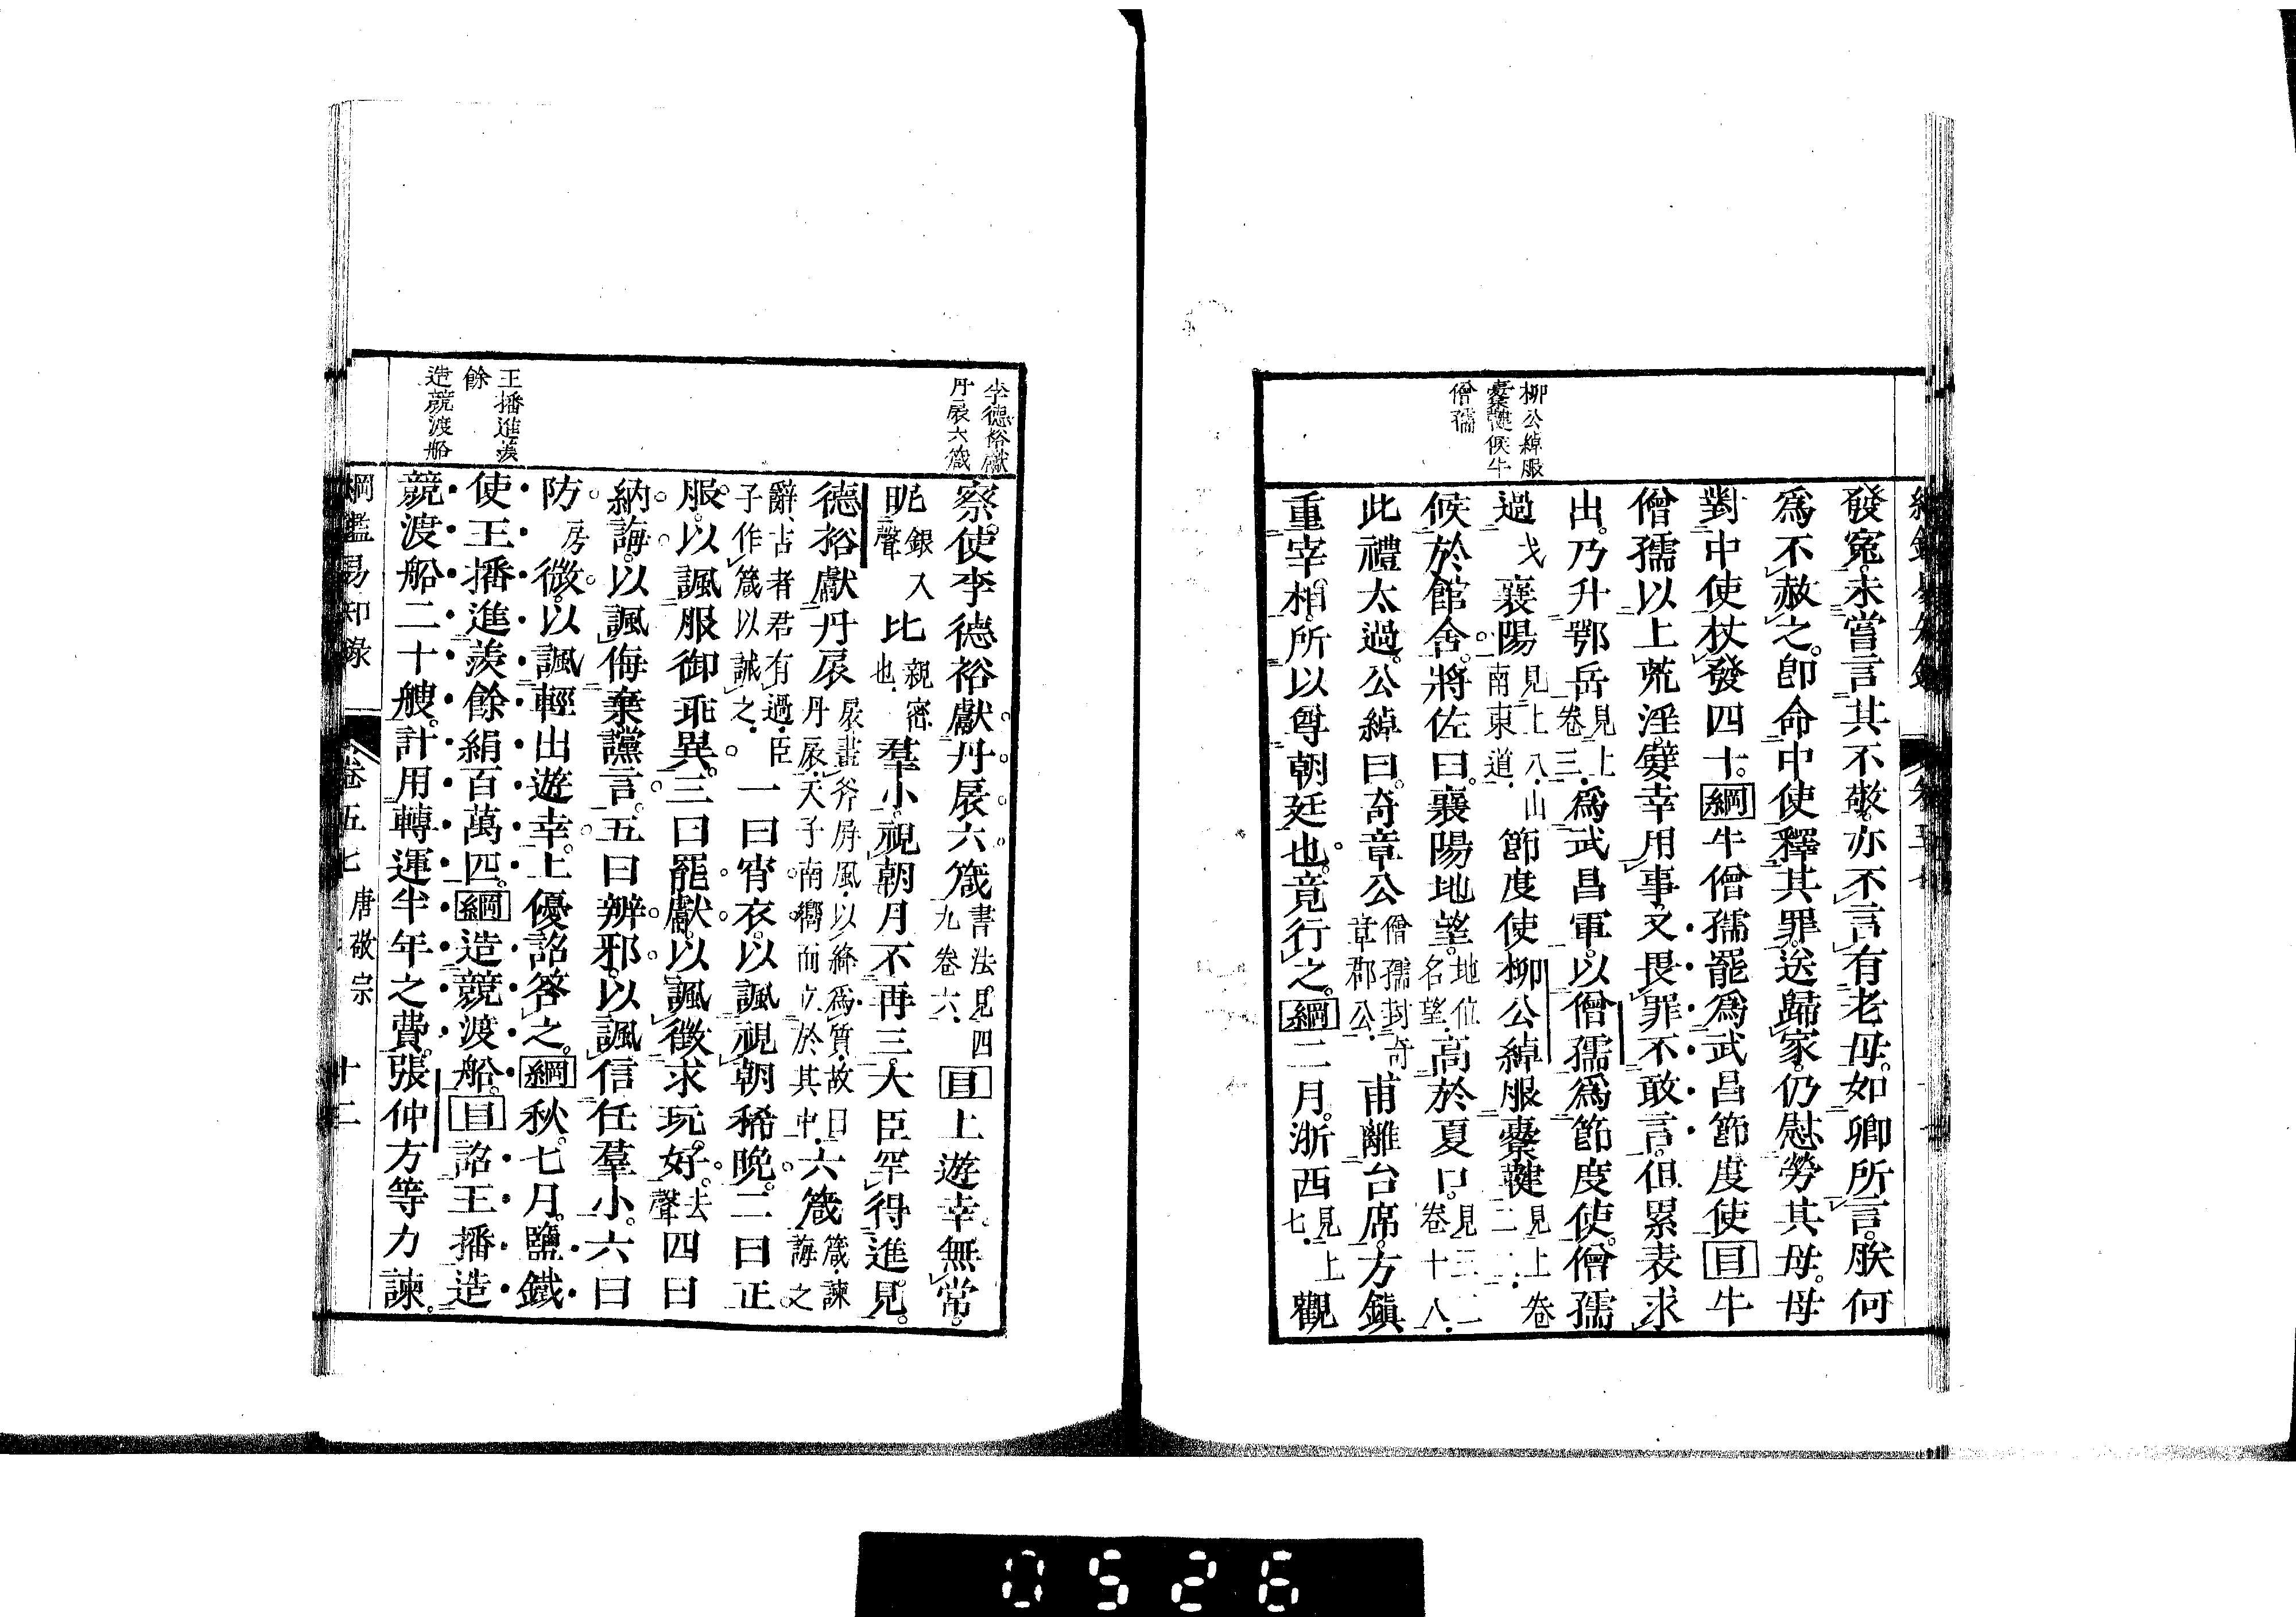 柳公綽服
櫜鞬候牛
僧孺
發冤。未嘗言其不敬。亦不言有老母。如卿所言。朕何
爲不赦之。卽命中使釋其罪。送歸家。仍慰勞其母。母
對中使杖發四十。綱牛僧孺罷爲武昌節度使目牛
僧孺以上荒淫。嬖幸用事。又畏罪不敢言。但累表求
出。乃升鄂岳見上卷三.爲武昌軍。以僧孺爲節度使。僧孺
過戈襄陽見上八.山南東道.節度使柳公綽服櫜鞬見上卷二二.
候於館舍。將佐曰。襄陽地望地位名望.高於夏口。見三二卷十八.
此禮太過。公綽曰。奇章公僧孺封奇章郡公.甫離台席。方鎮
重宰相。所以尊朝廷也。竟行之。綱二月。浙西見上七.觀
李德裕獻
丹扆六箴
王播進羨
餘
造競渡船
察使李德裕獻丹扆六箴書法見四九卷六.目上遊幸無常。
昵銀入聲比親密也.羣小。視朝月不再三。大臣罕得進見。
德裕獻丹扆扆畫斧屏風.以絳爲質.故曰丹扆.天子南嚮而立於其中.六箴箴.諫誨之
辭.古者君有過.臣子作箴以誡之.一曰宵衣。以諷視朝稀晚。二曰正
服。以諷服御乖異。三曰罷獻。以諷徵求玩好。去聲四曰
納誨。以諷侮棄讜言。五曰辨邪。以諷信任羣小。六曰
防房微。以諷輕出遊幸。上優詔答之。綱秋。七月。鹽鐵
使王播進羨餘絹百萬匹。綱造競渡船。目詔王播造
競渡船二十艘。計用轉運半年之費。張仲方等力諫。
綱鑑易知錄 卷五七 唐敬宗 十二
0526